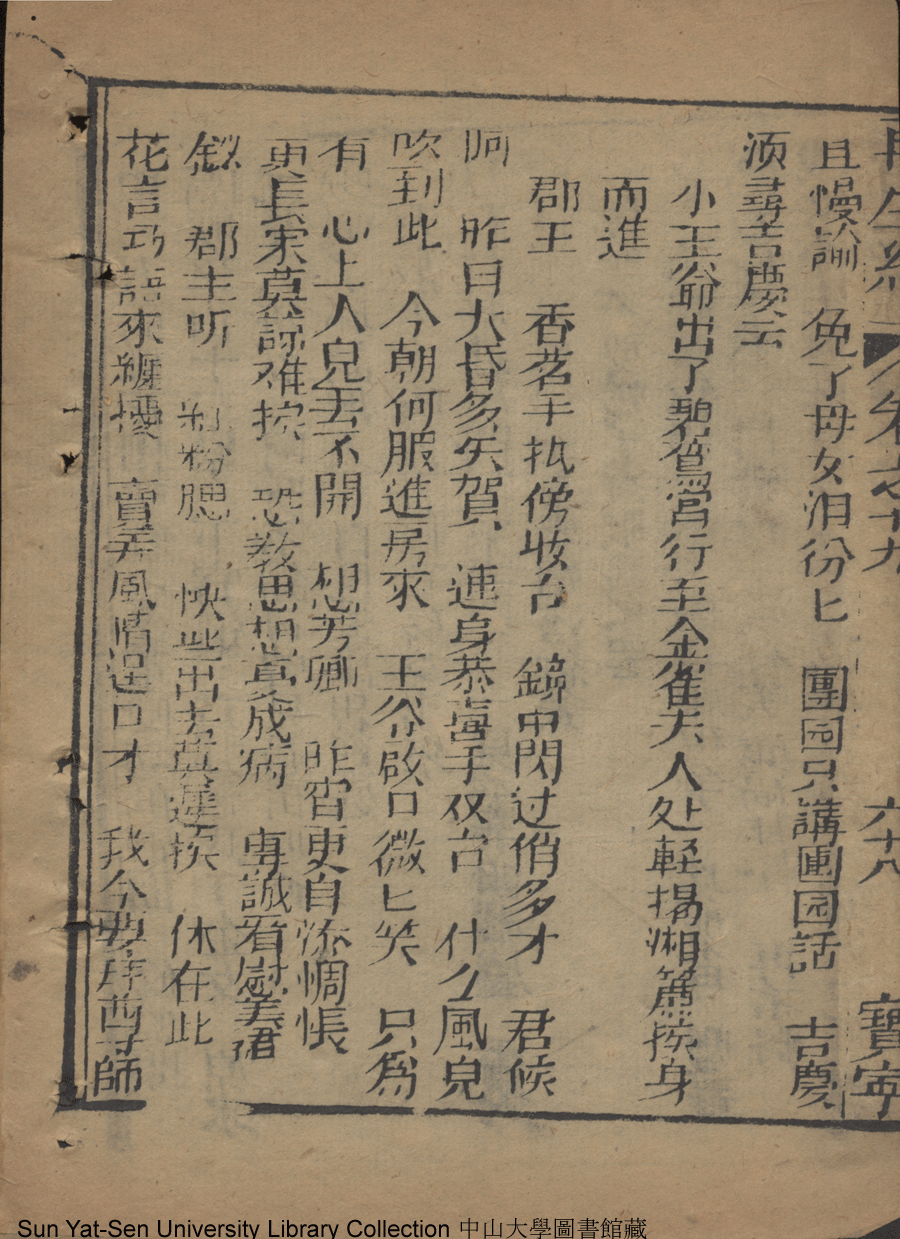 再生緣 卷之十九 六十八 寶寧
且慢論 免了母女泪份匕 團园只講團园話 吉慶
须尋吉慶云
小王爺出了碧鴛宮行至金雀夫人处輕揭湘簾挨身
而進
郡王 香茗手抵傍妆台 鏡中閃过俏多才 君候
昨日大昏多失賀 連身恭喜手双台 什么風皃
吹到此 今朝何服進房來 王爷啟口微匕笑 只為
有 心上人皃丟不開 想芳卿 昨宵更自添惆悵
更長寂莫諒难挨 恐教思想真成病 専誠看慰美裙
釵 郡主听 粉腮 快些出去莫遲挨 休在此
花言巧語來纏擾 賣弄風情逞口才 我今要拜酉師
Sun Yat-Sen University Library Collection 中山大學圖書館藏